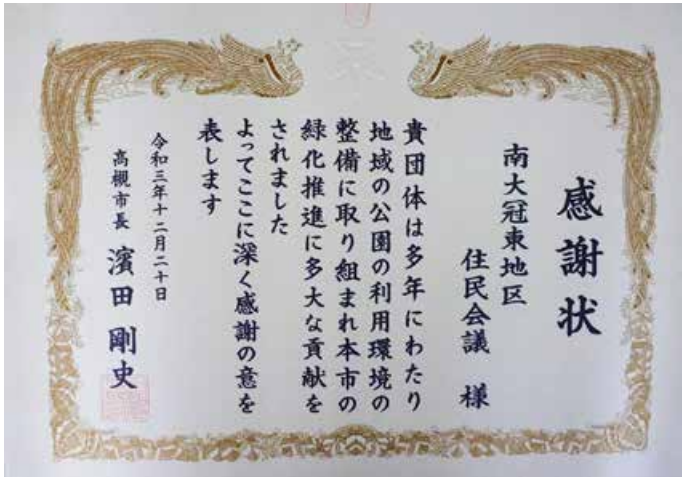 感謝状
南大冠東地区
住民会議 様
貴団体は多年にわたり
地域の公園の利用環境の
整備に取り組まれ本市の
緑化推進に多大な貢献を
されました
よってここに深く感謝の意を
表します
令和三年十二月二十日
高槻市長 濱田剛史